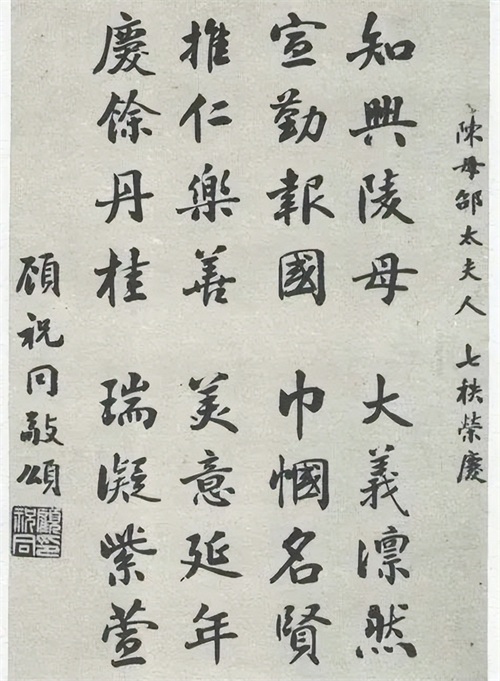 陳母邵太夫人 七秩榮慶
知興陵母 大義凛然
宣勤報國 巾幗名賢
推仁樂善 美意延年
慶餘丹桂 瑞凝紫萱
顧祝同敬頌
顧祝同印